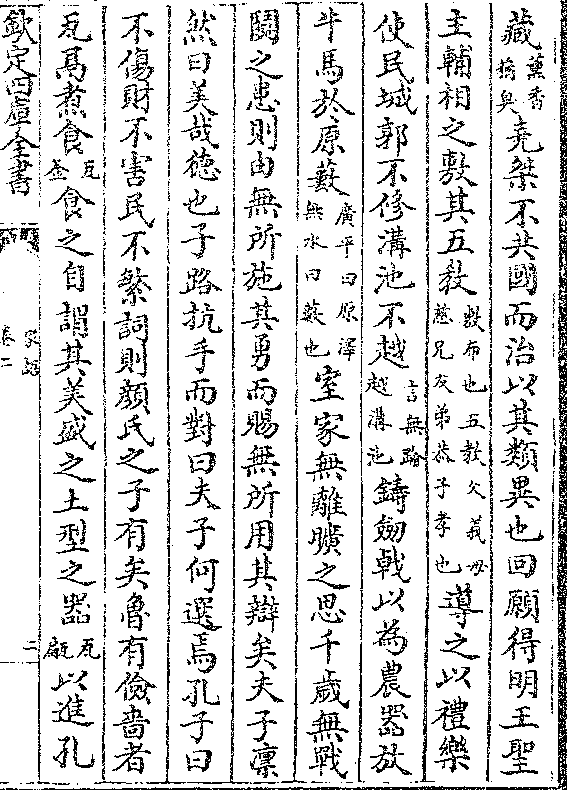 藏薰香蕕臭堯桀不共國而治以其類異也回願得明王聖
主輔相之敷其五教敷布也五教父義母慈兄友弟恭子孝也導之以禮樂
使民城郭不修溝池不越言無踰越溝池鑄劒㦸以為農器放
牛馬於原藪廣平曰原澤無水曰藪也室家無離曠之思千歳無戰
鬭之患則由無所施其勇而賜無所用其辯矣夫子凛
然曰美哉德也子路抗手而對曰夫子何選焉孔子曰
不傷財不害民不繁詞則顔氏之子有矣魯有儉嗇者
瓦鬲煮食瓦釜食之自謂其美盛之土型之器瓦甂以進孔
欽定四庫全書
家語
卷二
二